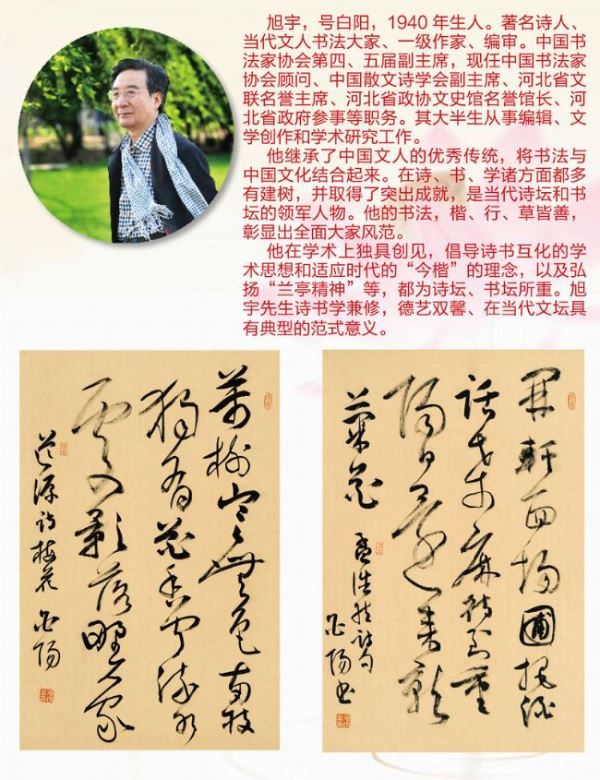 旭宇，号白阳，1940年生人。著名诗人、
当代文人书法大家、一级作家、编审。中国书
法家协会第四、五届副主席，现任中国书法家
协会顾问、中国散文诗学会副主席、河北省文
联名誉主席、河北省政协文史馆名誉馆长、河
北省政府参事等职务。其大半生从事编辑、文
学创作和学术研究工作。
他继承了中国文人的优秀传统，将书法与
中国文化结合起来。在诗、书、学诸方面都多
有建树，并取得了突出成就，是当代诗坛和书
坛的领军人物。他的书法，楷、行、草皆善，
彰显出全面大家风范。
他在学术上独具创见，倡导诗书互化的学
术思想和适应时代的“今楷”的理念，以及弘
扬“兰亭精神”等，都为诗坛、书坛所重。旭
宇先生诗书学兼修，德艺双馨、在当代文坛具
有典型的范式意义。
萬樹寒無色南枝
獨有花香聞流水
處影落野人家
道源詩梅花 白陽
開軒面場圃把酒
話桑麻待到重
陽日還來就
菊花 孟浩然詩句 白陽書